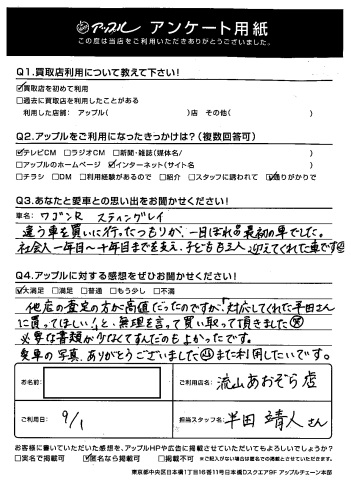 アップル アンケート用紙
この度は当店をご利用いただきありがとうございました。
Q1.買取店利用について教えて下さい!
☑買取店を初めて利用
□過去に買取店を利用したことがある
利用した店舗: アップル( )店 その他( )
Q2.アップルをご利用になったきっかけは?(複数回答可)
☑テレビCM □ラジオCM □新聞・雑誌(媒体名/ )
□アップルのホームページ ☑インターネット(サイト名 )
□チラシ □DM □利用経験があるので □紹介 □スタッフに誘われて ☑通りがかりで
Q3.あなたと愛車との思い出をお聞かせください!
車名: ワゴンR スティングレイ
違う車を買いに行ったつもりが、一目ぼれした最初の車でした。
社会人一年目〜十年目までを支え、子どもも三人迎えてくれた車です
Q4.アップルに対する感想をぜひお聞かせください!
☑大満足 □満足 □普通 □もう少し □不満
他店の査定の方が高値だったのですが、「対応してくれた半田さん
に買ってほしい!」と、無理を言って買い取って頂きました
必要な書類が少なくてすんだのもよかったです。
愛車の写真、ありがとうございました また利用したいです。
お名前:
ご利用店名: 流山あおぞら店
ご利用日: 9/1
担当スタッフ名: 半田 靖人さん
お客様に書いていただいた感想を、アップルHPや広告に掲載させていただいてもよろしいでしょうか?
□実名で掲載可 ☑匿名なら掲載可 □掲載不可 ※ご記入がない場合は匿名での掲載とさせていただきます。
東京都中央区日本橋1丁目16番11号日本橋Dスクエア9F アップルチェーン本部